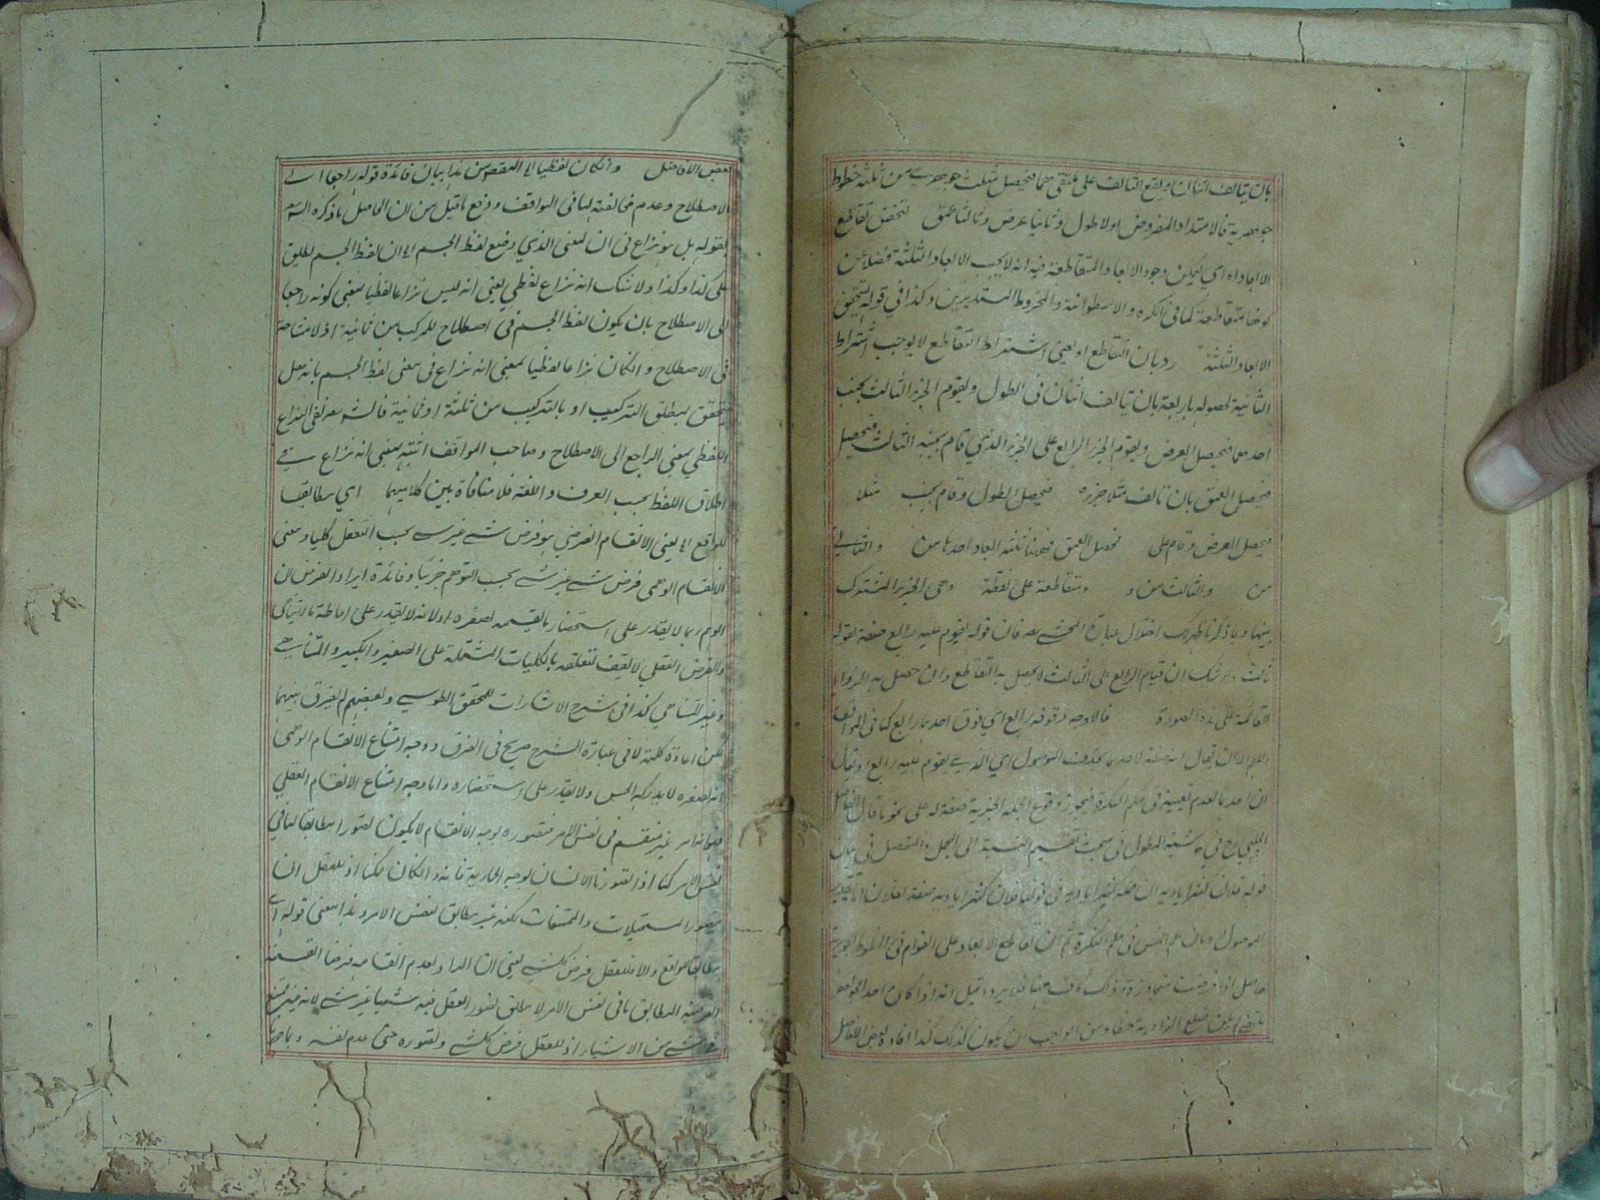 بان يتالف اثنان ويقع التالف على ملتقى هما فيحصل مثلث جوهري من ثلثة خطوط
جوهرية فالامتداد المفروض اولا طول وثانيا عرض وثالثا عمق لتحقق تقاطع
الابعاد اه اي ليمكن وجود الابعاد المتقاطعة فيه انه لا يجب الابعاد الثلثة فضلا عن
كونها متقاطعة كما في الكره والاسطوانة والمخروط المستديرين وكذا في قوله لتحقق
الابعاد الثلثة ردبان التقاطع اه يعني اشتراط التقاطع لا يوجب اشتراط
الثانية لحصوله باربعة بان يتالف اثنان في الطول ويقوم الجزء الثالث بجنب
احدهما فيحصل العرض ويقوم الجزء الرابع على الجزء الذي قام بجنبه الثالث فيحصل
فيحصل العمق بان تالف مثلا جزء فيحصل الطول وقام بجنب مثلا
فيحصل العرض وقام على فحصل العمق فههنا ثلثة ابعاد احدها من والثاني
من والثالث من و متقاطعة على نقطة وهي الجزء المشترك
بينها وبما ذكرنا ظهر لك اختلال عبارة المحشي فان قوله ليقوم عليه رابع صفة لقوله
ثالث ولا شك ان قيام الرابع على الثالث لا يحصل به التقاطع وان حصل به الزوايا
القائمة على هذه الصورة فالاوجه وقوفه رابع اي فوق احدهما رابع كما في المواقف
اللهم الا ان يقال انه صفة لاحدهما بحذف الموصول اي الذي يقوم عليه رابع او يقال
ان احدهما لعدم تعيينه في حكم النكرة فيجوز وقوع الجملة الخبرية صفة له على نحو ما قال الفاضل
الچلپي في حاشية المطول في بحث تقسيم النسبة الى المجمل والمفصل في بيان
الموصول وبان علم الجنس في حكم النكرة ثم ان تقاطع الابعاد على القوائم في الخطوط الجوهرية
بعض الافاضل وانكان لفظيا اه المقصود من هذا بيان فائدة قوله راجعا الى
الاصطلاح وعدم مخالفته لما في المواقف ودفع ما قيل من ان الحاصل ما ذكره السيد
بقوله بل هو نزاع في ان المعنى الذي وضع لفظ الجسم اه ان لفظ الجسم يطلق
على كذا وكذا ولا شك انه نزاع لفظي يعني انه ليس نزاعا لفظيا بمعنى كونه راجعا
الى الاصطلاح بان يكون لفظ الجسم في اصطلاح للمركب من ثمانية اذ لا مشاحة
في الاصطلاح وانكان نزاعا لفظيا بمعنى انه نزاع في معنى لفظ الجسم بانه هل
يتحقق بمطلق التركيب او بالتركيب من ثلثة او ثمانية فالشه نفى النزاع
اللفظي بمعنى الراجع الى الاصطلاح وصاحب المواقف اثبته بمعنى انه نزاع في
اطلاق اللفظ بحسب العرف واللغة فلا منافاة بين كلاميهما اي مطابقا
للواقع اه يعني الانقسام الفرضي هو فرض شيء غير شيء بحسب التعقل كليا ومعنى
الانقسام الوهمي فرض شيء غير شيء بحسب التوهم جزئيا وفائدة ايراد الفرض ان
الوهم ربما لا يقدر على استحضار ما يقسمه لصغره او لانه لا يقدر على احاطة ما لا يتناهى
والفرض العقلي لا يقف لتعلقه بالكليات المشتملة على الصغير والكبير والمتناهي
وغير المتناهي كذا في شرح الاشارات للمحقق الطوسي وبعضهم لم يفرق بينهما
لكن اعادة كلمة لا في عبارة الشرح صريح في الفرق ووجه امتناع الانقسام الوهمي
انه لصغره لا يدركه الحس ولا يقدر على استحضاره واما وجه امتناع الانقسام العقلي
فهو انه امر غير منقسم في نفس الامر فتصوره بوجه الانقسام لا يكون تصورا مطابقا لما في
نفس الامر كما اذا تصورنا الانسان بوجه الحمارية فانه وانكان ممكنا اذ للعقل ان
يتصور المستحيلات والممتنعات لكنه غير مطابق لنفس الامر وهذا معنى قوله اي
مطابقا للواقع والا فللعقل فرض كل شيء يعني ان المراد بعدم انقسامه فرضا القسمة
الفرضية المطابق بما في نفس الامر لا مطلق تصور العقل فيه شيئا غير شيء لانه غير ممتنع
في شيء من الاشياء اذ للعقل فرض كل شيء وتصوره حتى عدم نفسه